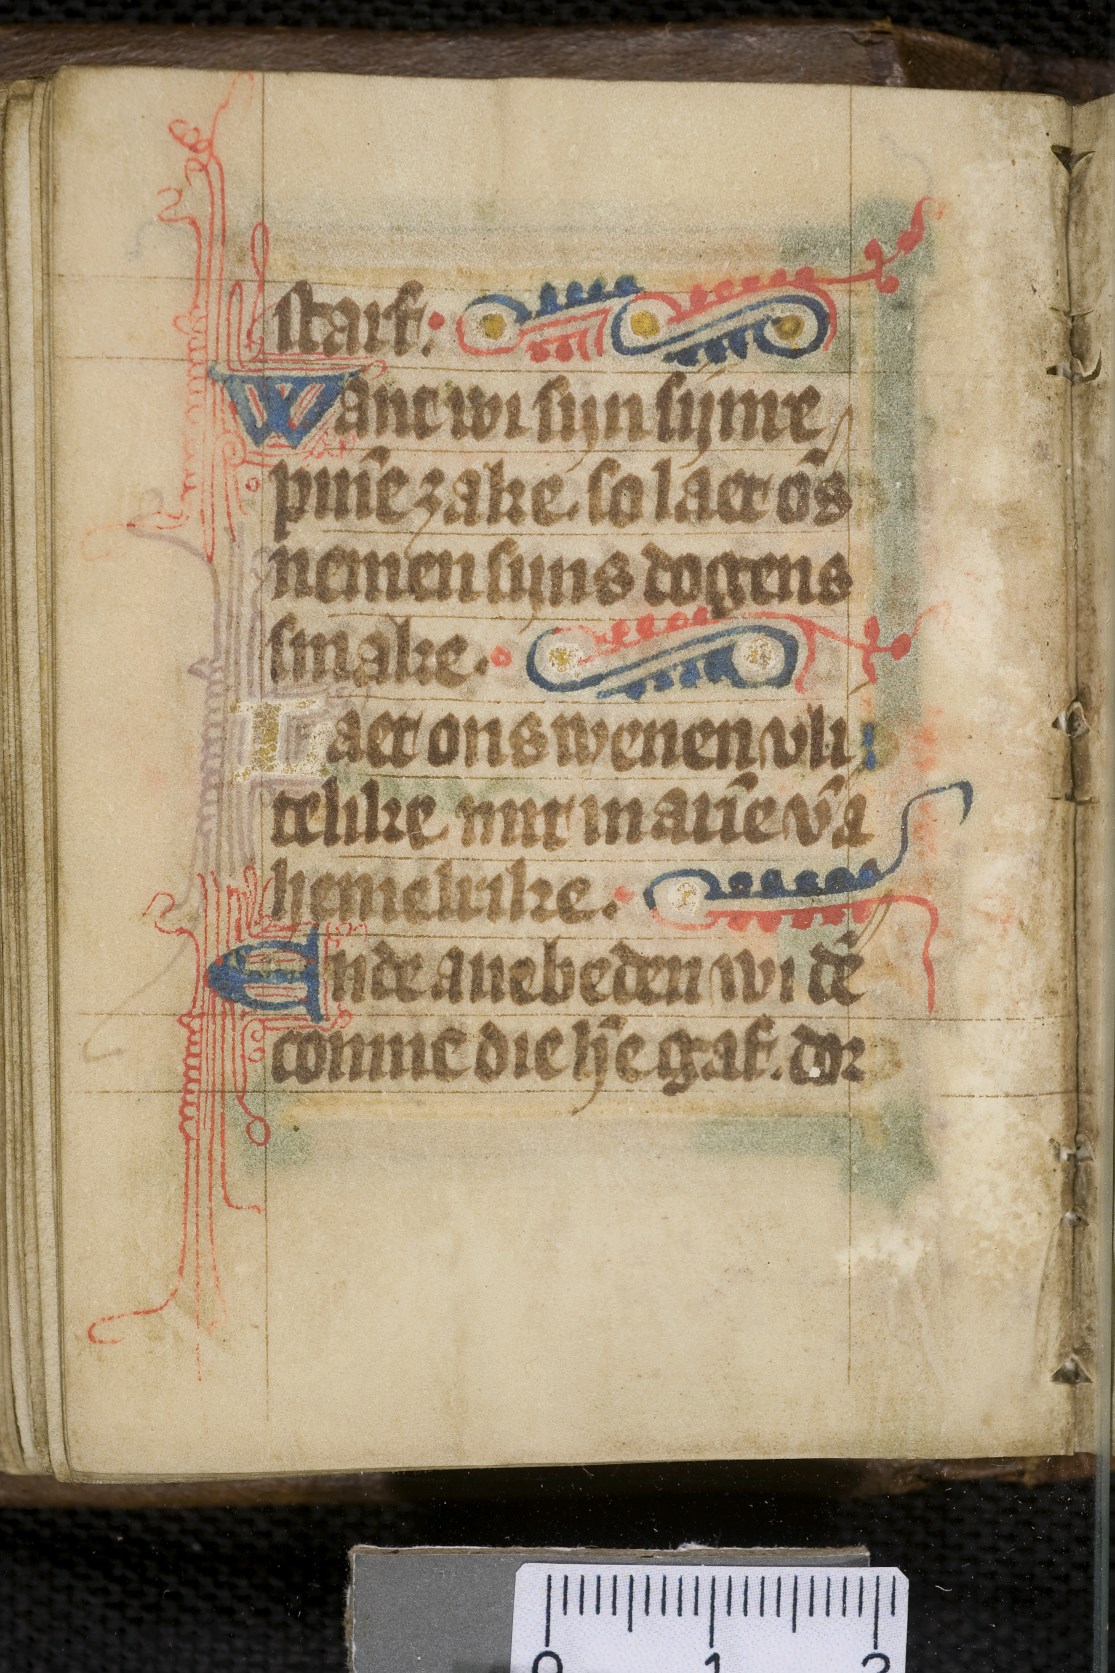 starf.
Want wi sijn sijnre
pinē zake. so laet ōs
nemen sijns dogens
smake.
Laet ons wenen vli
telike. mit mariē vā
hemelrike.
Ende anebeden wi dē
comme die hē gaf. dor
0 1 2